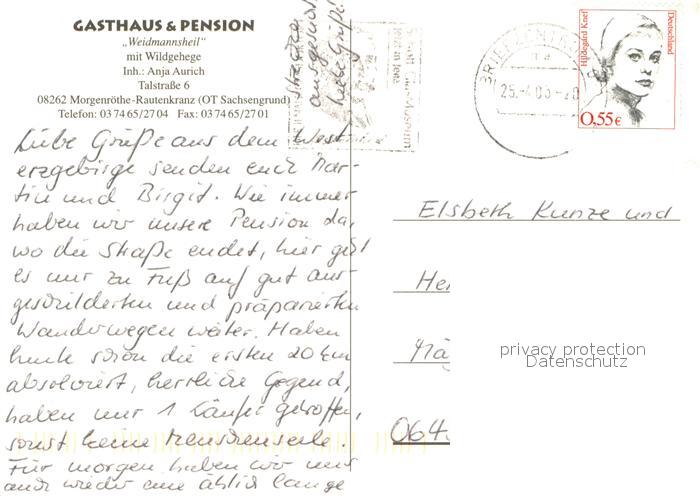 GASTHAUS & PENSION
„Weidmannsheil"
mit Wildgehege
Inh.: Anja Aurich
Talstraße 6
08262 Morgenröthe-Rautenkranz (OT Sachsengrund)
Telefon: 03 74 65/27 04 Fax: 03 74 65/27 01
Liebe Grüße aus dem West
erzgebirge senden euch Mar-
tin und Birgit. Wie immer
haben wir unsere Pension da,
wo die Straße endet, hier geht
es nur zu Fuß auf gut aus-
geschilderten und präparierten
Wanderwegen weiter. Haben
heute schon die ersten 20 km
absolviert, herrliche Gegend,
haben nur 1 Läufer getroffen,
sonst keine Menschenseele.
Für morgen haben wir uns
auch wieder eine ähnlich lange
Strecke
ausgesucht
Liebe Grüße
BRIEFZENTRUM
25.-4.03-20
Hildegard Knef
Deutschland
0,55€
Elsbeth Kunze und
He
064
privacy protection
Datenschutz